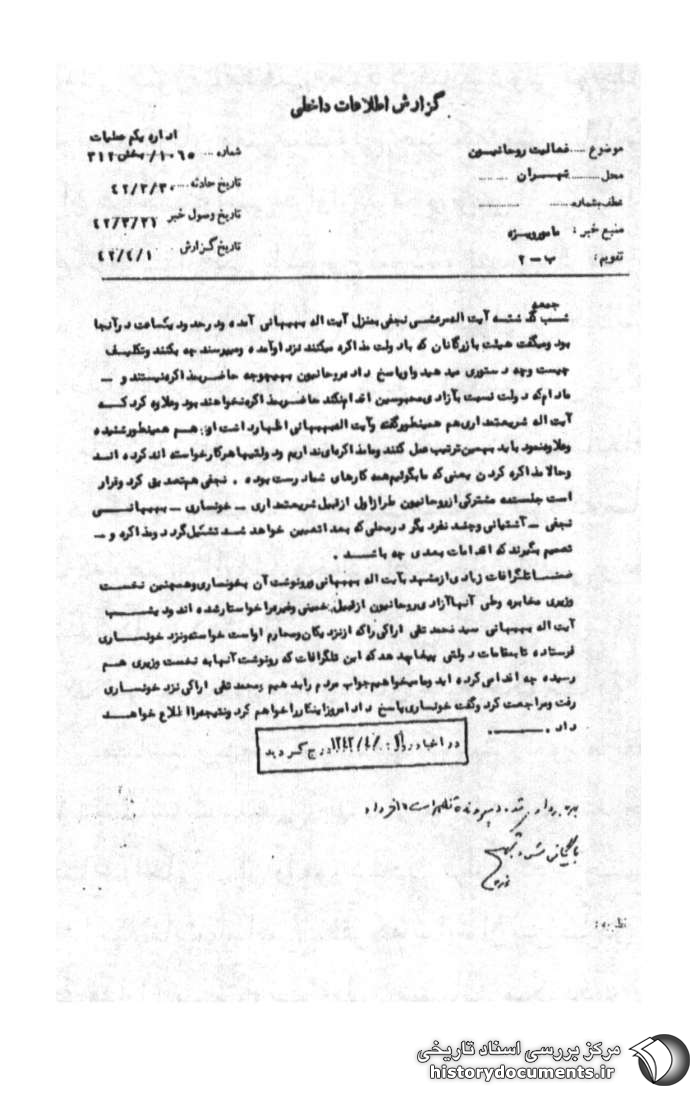 گزارش اطلاعات داخلی
اداره یکم عملیات
موضوع ..... فعالیت روحانیون
شماره ... ۱۰۶۵/بخش۳۱۲
محل ......... تهران
تاریخ حادثه ... ۴۲/۳/۳۰
عطف بشماره
تاریخ وصول خبر ۴۲/۳/۳۱
منبع خبر : مامور ویژه
تاریخ گزارش ۴۲/۴/۱
تقویم : ب - ۲
جمعه
شب گذشته آیت اله مرعشی نجفی بمنزل آیت اله بهبهانی آمده و در حدود یکساعت در آنجا
بود و میگفت هیئت بازرگانان که با دولت مذاکره میکنند نزد او آمده و میپرسند چه بکنند و تکلیف
چیست و چه دستوری میدهید و او پاسخ داده روحانیون بهیچوجه حاضر بمذاکره نیستند و -
مادام که دولت نسبت بآزادی محبوسین اقدام نکند حاضر بمذاکره نخواهند بود و علاوه کرد که
آیت اله شریعتمداری هم همینطور گفته و آیت اله بهبهانی اظهار داشت او هم همینطور شنیده
و علاوه نمود باید بهمین ترتیب عمل کنند و ما مذاکره ای نداریم و دولتیها هر کار خواسته اند کرده اند
و حالا مذاکره کردن یعنی که ما بگوئیم همه کارهای شما درست بوده . نجفی هم تصدیق کرد و قرار
است جلسه مشترکی از روحانیون طراز اول از قبیل شریعتمداری - خونساری - بهبهانی
نجفی - آشتیانی و چند نفر دیگر در محلی که بعدا تعیین خواهد شد تشکیل گردد و مذاکره و -
تصمیم بگیرند که اقدامات بعدی چه باشد .
ضمنا تلگرافات زیادی از مشهد بآیت اله بهبهانی و رونوشت آن بخونساری و همچنین نخست
وزیری مخابره و طی آنها آزادی روحانیون از قبیل خمینی و غیره را خواستار شده اند و دیشب
آیت اله بهبهانی سید محمد تقی اراکی را که از نزدیکان و محارم او است خواسته و نزد خونساری
فرستاده تا بمقامات دولتی پیغام بدهد که این تلگرافات که رونوشت آنها به نخست وزیری هم
رسیده چه اقدامی کرده اید و ما میخواهیم جواب مردم را بدهیم و محمد تقی اراکی نزد خونساری
رفت و مراجعت کرد و گفت خونساری پاسخ داد امروز اینکار را خواهم کرد و نتیجه را اطلاع خواهد
داد .
در اخبار روز درج گردید
نظریه :
مرکز بررسی اسناد تاریخی
historydocuments.ir